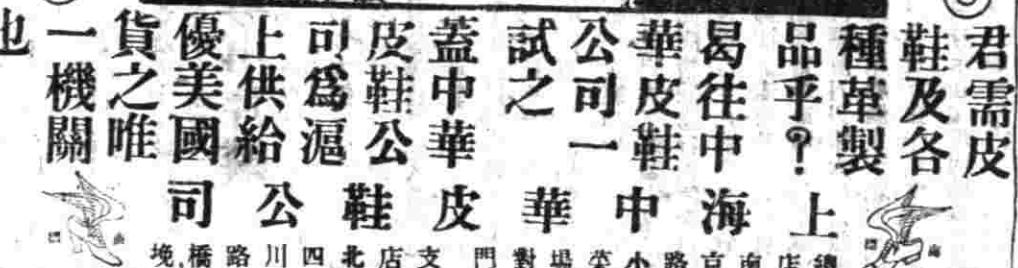 君需皮
鞋及各
種革製
品乎？
曷往中
華皮鞋
公司一
試之
蓋中華
皮鞋公
司為滬
上供給
優美國
貨之唯
一機關
也
上海中華皮鞋公司
總店南京路小菜場對門 支店北四川路橋堍